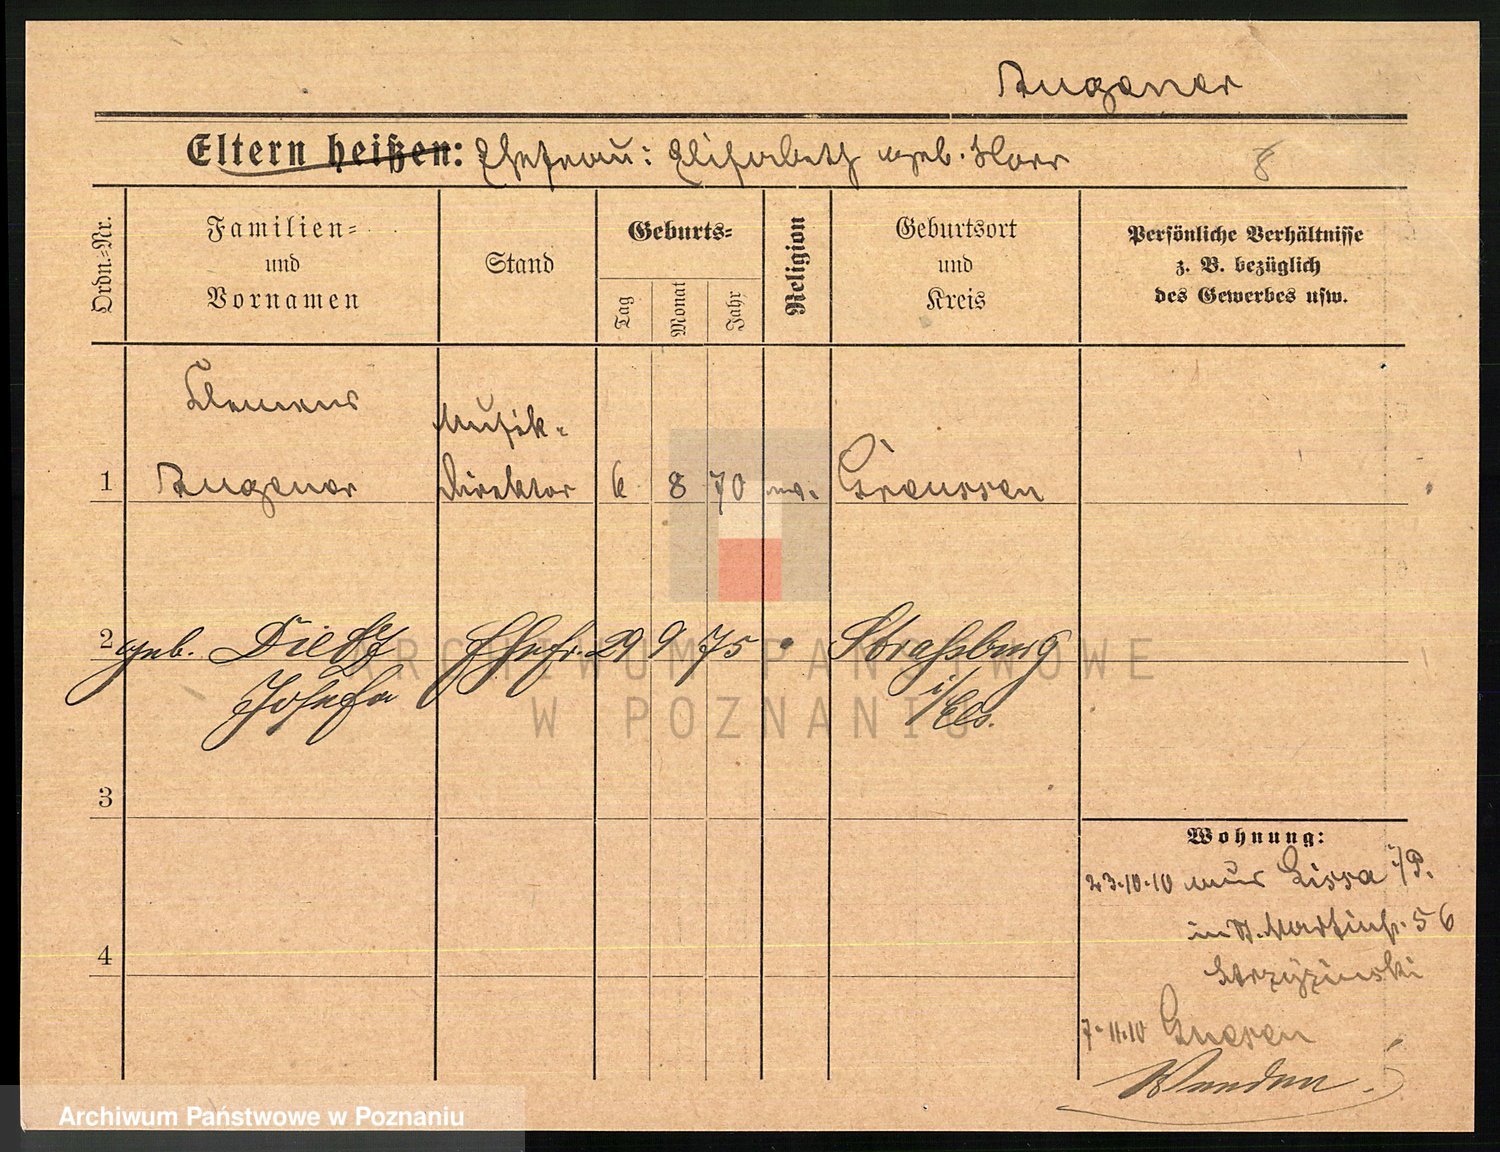 Augener
Eltern heißen: Ehefrau: Elisabeth geb. Horr
8
Ordn.-Nr.
Familien-
und
Vornamen
Stand
Geburts-
Tag
Monat
Jahr
Religion
Geburtsort
und
Kreis
Persönliche Verhältnisse
z. B. bezüglich
des Gewerbes usw.
Clemens
Musik-
1 Augener Direktor 6 8 70 ev. Greussen
2 geb. Dietz Ehefr. 29 9 75 " Straßburg
Josefa i/Els.
3
Wohnung:
23.10.10 aus Lissa i/P.
in St. Martinstr. 56
4
7.11.10 Gnesen
ARCHIWUM PAŃSTWOWE
W POZNANIU
Archiwum Państwowe w Poznaniu